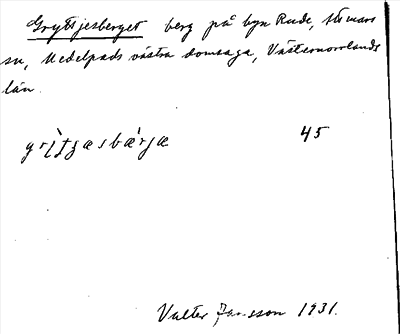 Gryttjesberget berg på byn Rude, Stömars
su, Medelpads västra domsaga, Västernorrlands
län.
45
Valter Jansson 1931.